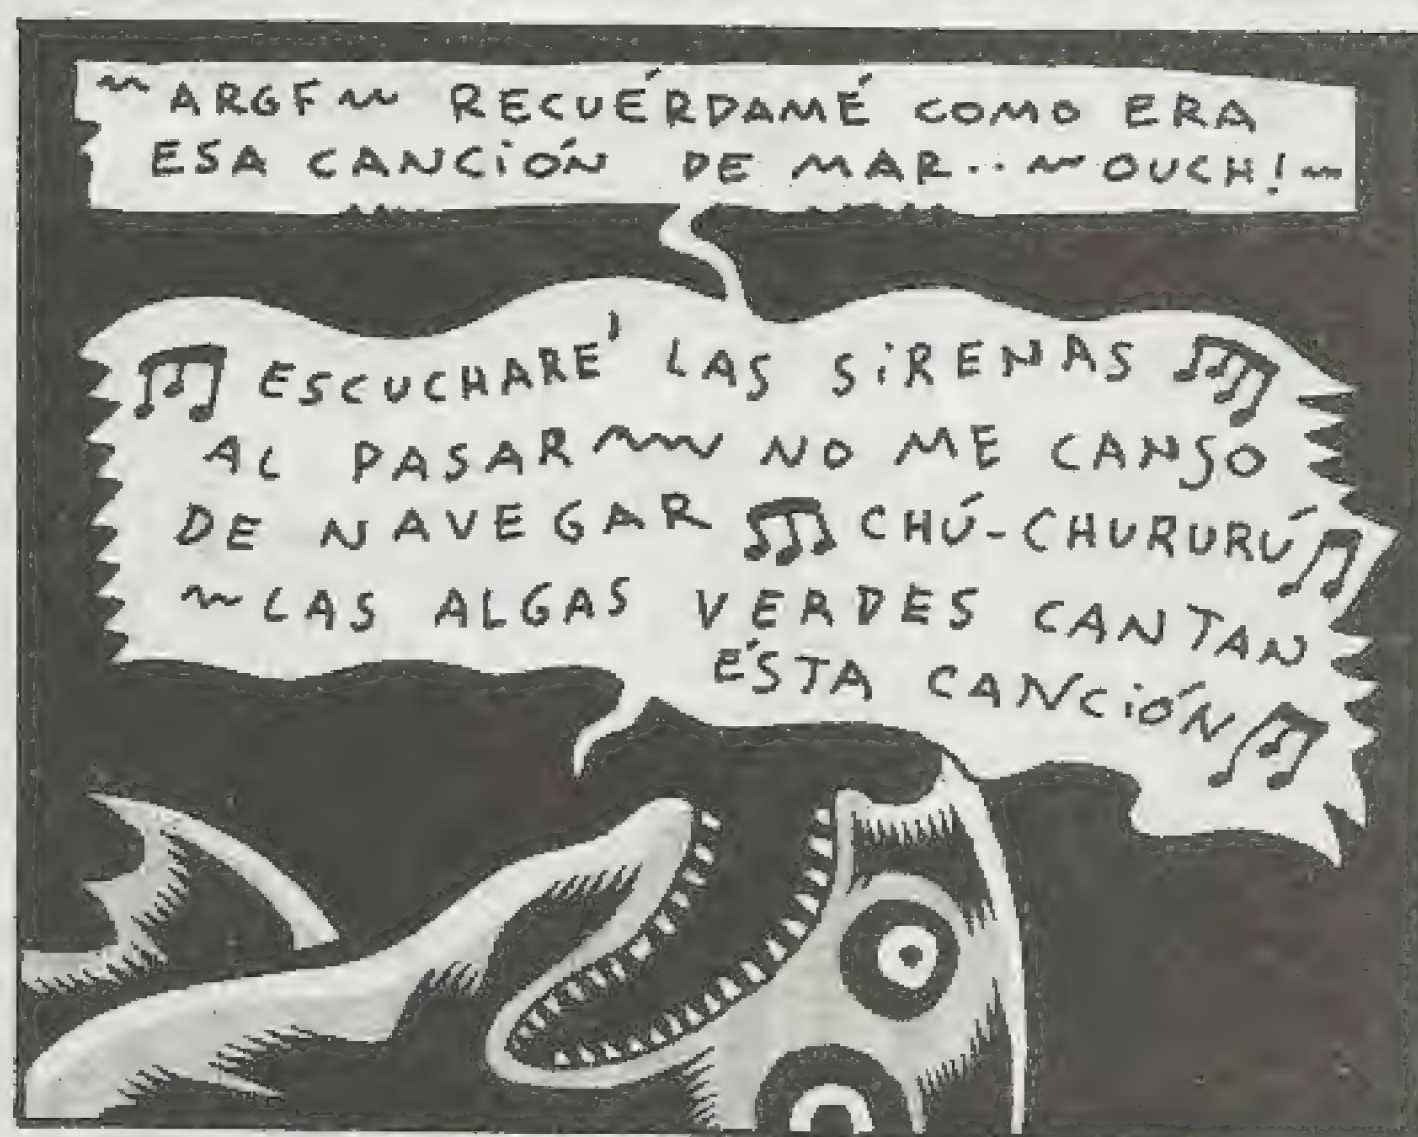 ~ARGF~ RECUÉRDAMÉ COMO ERA
ESA CANCIÓN DE MAR.. ~OUCH!~
ESCUCHARÉ LAS SIRENAS
AL PASAR~~ NO ME CANSO
DE NAVEGAR CHÚ-CHURURÚ
~LAS ALGAS VERDES CANTAN
ÉSTA CANCIÓN